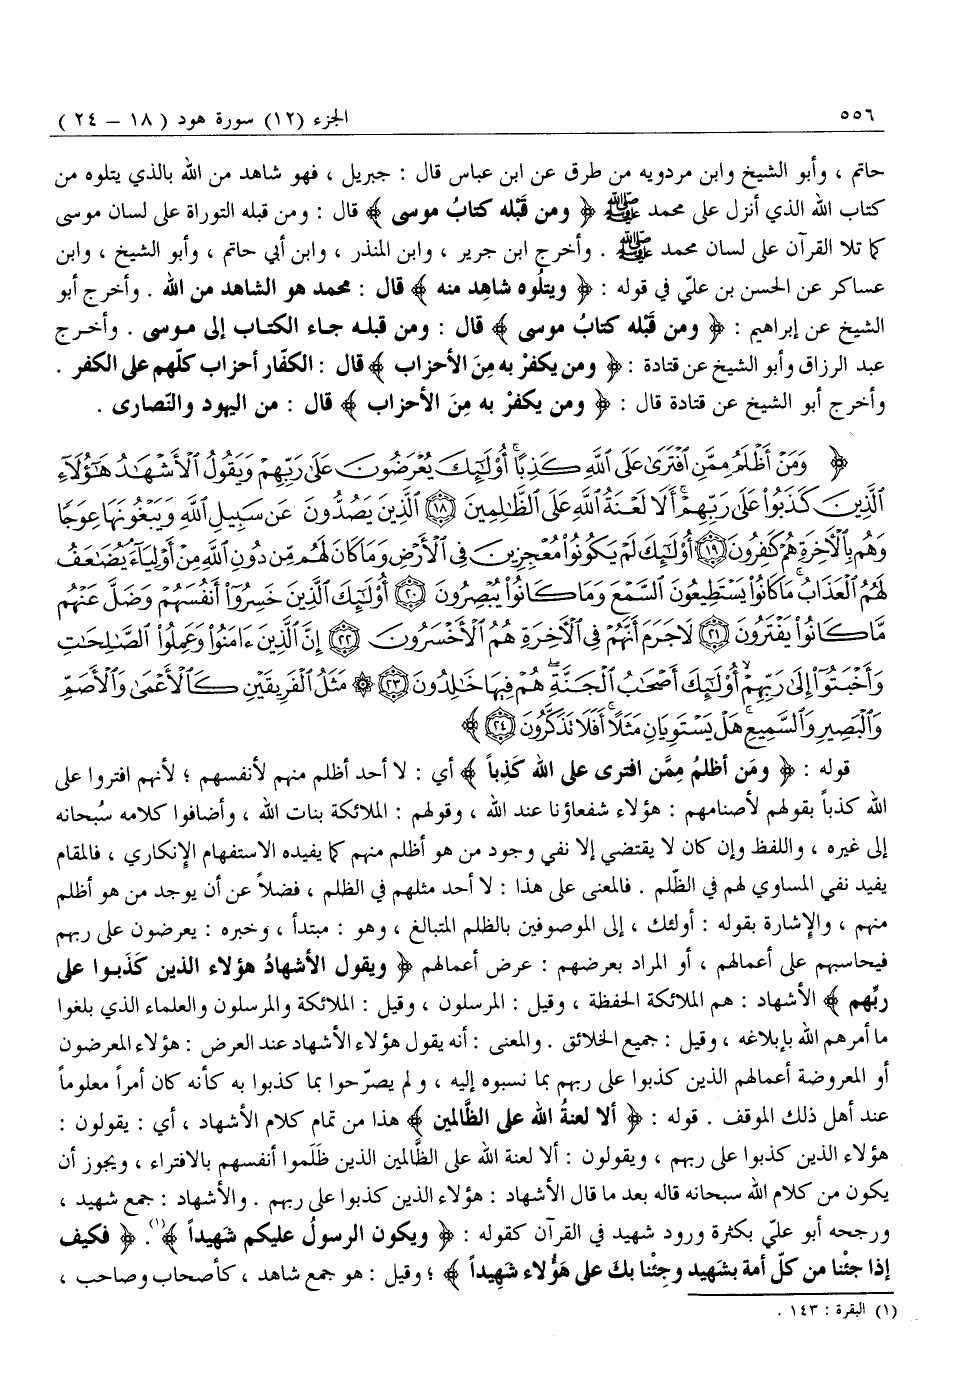 ٥٥٦
الجزء (١٢) سورة هود ( ١٨ – ٢٤ )
حاتم ، وأبو الشيخ وابن مردويه من طرق عن ابن عباس قال : جبريل ، فهو شاهد من الله بالذي يتلوه من
كتاب الله الذي أنزل على محمد ﷺ ﴿ ومن قَبْله كتابُ موسى ﴾ قال : ومن قبله التوراة على لسان موسى
كما تلا القرآن على لسان محمد ﷺ . وأخرج ابن جرير ، وابن المنذر ، وابن أبي حاتم ، وأبو الشيخ ، وابن
عساكر عن الحسن بن عليّ في قوله : ﴿ ويتلُوه شاهِد منه ﴾ قال : محمد هو الشاهد من الله . وأخرج أبو
الشيخ عن إبراهيم : ﴿ ومن قَبْله كتابُ موسى ﴾ قال : ومن قبلـه جـاء الكتـاب إلى مـوسى . وأخـرج
عبد الرزاق وأبو الشيخ عن قتادة : ﴿ ومن يكفرْ به مِنَ الأحزاب ﴾ قال : الكفّار أحزاب كلّهم على الكفر .
وأخرج أبو الشيخ عن قتادة قال : ﴿ ومن يكفرْ به مِنَ الأحزاب ﴾ قال : من اليهود والنّصارى .
﴿ وَمَنْ أَظْلَمُ مِمَّنِ ٱفْتَرَىٰ عَلَى ٱللَّهِ كَذِبًا ۚ أُوْلَـٰٓئِكَ يُعْرَضُونَ عَلَىٰ رَبِّهِمْ وَيَقُولُ ٱلْأَشْهَـٰدُ هَـٰٓؤُلَآءِ
ٱلَّذِينَ كَذَبُواْ عَلَىٰ رَبِّهِمْ ۚ أَلَا لَعْنَةُ ٱللَّهِ عَلَى ٱلظَّـٰلِمِينَ ١٨ ٱلَّذِينَ يَصُدُّونَ عَن سَبِيلِ ٱللَّهِ وَيَبْغُونَهَا عِوَجًا
وَهُم بِٱلْآخِرَةِ هُمْ كَـٰفِرُونَ ١٩ أُوْلَـٰٓئِكَ لَمْ يَكُونُواْ مُعْجِزِينَ فِى ٱلْأَرْضِ وَمَا كَانَ لَهُم مِّن دُونِ ٱللَّهِ مِنْ أَوْلِيَآءَ ۘ يُضَـٰعَفُ
لَهُمُ ٱلْعَذَابُ ۚ مَا كَانُواْ يَسْتَطِيعُونَ ٱلسَّمْعَ وَمَا كَانُواْ يُبْصِرُونَ ٢٠ أُوْلَـٰٓئِكَ ٱلَّذِينَ خَسِرُوٓاْ أَنفُسَهُمْ وَضَلَّ عَنْهُم
مَّا كَانُواْ يَفْتَرُونَ ٢١ لَا جَرَمَ أَنَّهُمْ فِى ٱلْآخِرَةِ هُمُ ٱلْأَخْسَرُونَ ٢٢ إِنَّ ٱلَّذِينَ ءَامَنُواْ وَعَمِلُواْ ٱلصَّـٰلِحَـٰتِ
وَأَخْبَتُوٓاْ إِلَىٰ رَبِّهِمْ أُوْلَـٰٓئِكَ أَصْحَـٰبُ ٱلْجَنَّةِ ۖ هُمْ فِيهَا خَـٰلِدُونَ ٢٣ ۞ مَثَلُ ٱلْفَرِيقَيْنِ كَٱلْأَعْمَىٰ وَٱلْأَصَمِّ
وَٱلْبَصِيرِ وَٱلسَّمِيعِ ۚ هَلْ يَسْتَوِيَانِ مَثَلًا ۚ أَفَلَا تَذَكَّرُونَ ٢٤ ﴾
قوله : ﴿ ومَن أظلمُ مِمَّن افترى على الله كَذِباً ﴾ أي : لا أحد أظلم منهم لأنفسهم ؛ لأنهم افتروا على
الله كذباً بقولهم لأصنامهم : هؤلاء شفعاؤنا عند الله ، وقولهم : الملائكة بنات الله ، وأضافوا كلامه سُبحانه
إلى غيره ، واللفظ وإن كان لا يقتضي إلا نفي وجود من هو أظلم منهم كما يفيده الاستفهام الإنكاري ، فالمقام
يفيد نفي المساوي لهم في الظّلم . فالمعنى على هذا : لا أحد مثلهم في الظلم ، فضلاً عن أن يوجد من هو أظلم
منهم ، والإشارة بقوله : أولئك ، إلى الموصوفين بالظلم المتبالغ ، وهو : مبتدأ ، وخبره : يعرضون على ربهم
فيحاسبهم على أعمالهم ، أو المراد بعرضهم : عرض أعمالهم ﴿ ويقول الأشهادُ هؤلاء الذين كَذَبـوا على
ربِّهم ﴾ الأشهاد : هم الملائكة الحفظة ، وقيل : المرسلون ، وقيل : الملائكة والمرسلون والعلماء الذي بلغوا
ما أمرهم الله بإبلاغه ، وقيل : جميع الخلائق . والمعنى : أنه يقول هؤلاء الأشهاد عند العرض : هؤلاء المعرضون
أو المعروضة أعمالهم الذين كذبوا على ربهم بما نسبوه إليه ، و لم يصرّحوا بما كذبوا به كأنه كان أمراً معلوماً
عند أهل ذلك الموقف . قوله : ﴿ ألا لعنةُ الله على الظَّالمين ﴾ هذا من تمام كلام الأشهاد ، أي : يقولون :
هؤلاء الذين كذبوا على ربهم ، ويقولون : ألا لعنة الله على الظَّالمين الذين ظلَموا أنفسهم بالافتراء ، ويجوز أن
يكون من كلام الله سبحانه قاله بعد ما قال الأشهاد : هؤلاء الذين كذبوا على ربهم . والأشهاد : جمع شهيد ،
ورجحه أبو عليّ بكثرة ورود شهيد في القرآن كقوله : ﴿ ويكون الرسولُ عليكم شَهيداً ﴾(١). ﴿ فكيف
إذا جئْنا من كلّ أمة بشَهيد وجِئْنا بكَ على هَؤُلاء شَهِيداً ﴾ ؛ وقيل : هو جمع شاهد ، كأصحاب وصاحب ،
(١) البقرة : ١٤٣ .